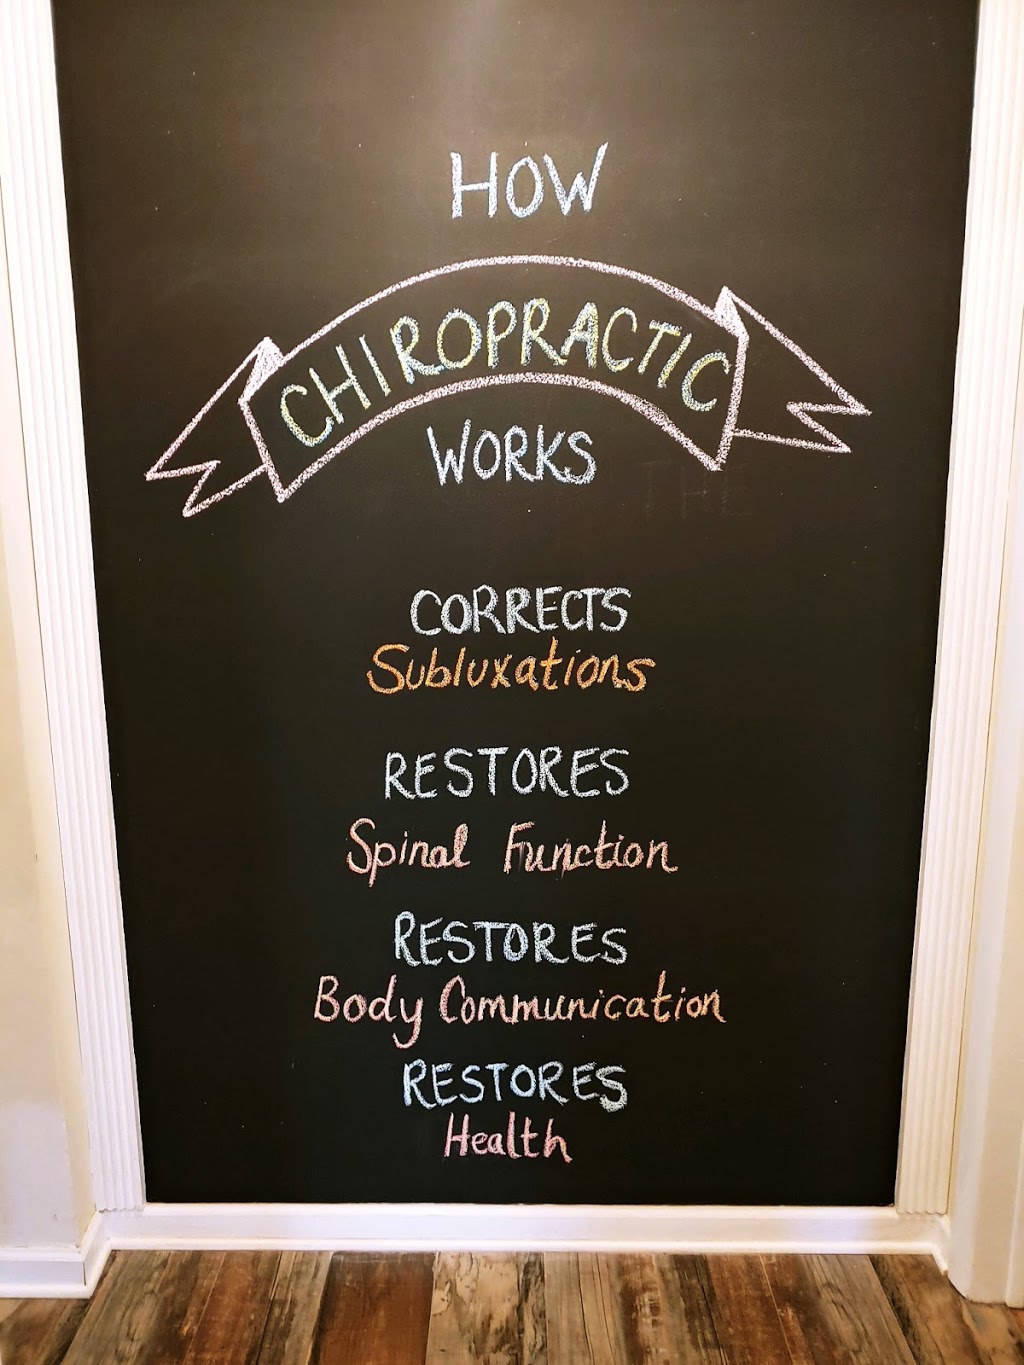 HOW
CHIROPRACTIC
WORKS
THE
CORRECTS
Subluxations
RESTORES
Spinal Function
RESTORES
Body Communication
RESTORES
Health